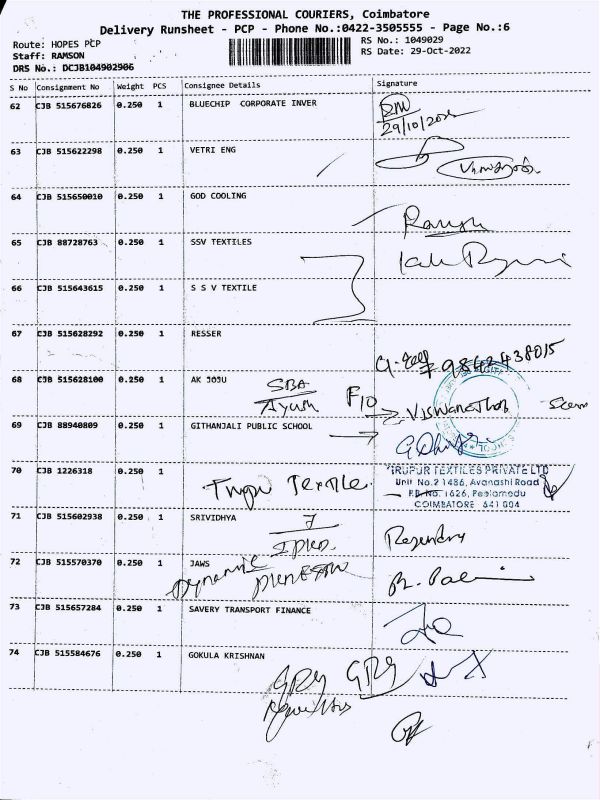 THE PROFESSIONAL COURIERS, Coimbatore
Delivery Runsheet - PCP - Phone No.:0422-3505555 - Page No.:6
Route: HOPES PCP
RS No.: 1049029
Staff: RAMSON
RS Date: 29-Oct-2022
DRS No.: DCJB104902906
S No Consignment No Weight PCS Consignee Details Signature
62 CJB 515676826 0.250 1 BLUECHIP CORPORATE INVER
29/10/2022
63 CJB 515622298 0.250 1 VETRI ENG
64 CJB 515650010 0.250 1 GOD COOLING
65 CJB 88728763 0.250 1 SSV TEXTILES
66 CJB 515643615 0.250 1 S S V TEXTILE
67 CJB 515628292 0.250 1 RESSER
9842438015
68 CJB 515628100 0.250 1 AK JOJU
SBA
Ayush F10 Viswanathan
69 CJB 88940809 0.250 1 GITHANJALI PUBLIC SCHOOL
70 CJB 1226318 0.250 1
TIRUPUR TEXTILES PRIVATE LTD
Unit No.2 1486, Avanashi Road
P.B. No. 1626, Peelamedu
COIMBATORE 641 004
Textile
71 CJB 515602938 0.250 1 SRIVIDHYA
Rajendra
72 CJB 515570370 0.250 1 JAWS
Dynamic
73 CJB 515657284 0.250 1 SAVERY TRANSPORT FINANCE
74 CJB 515584676 0.250 1 GOKULA KRISHNAN
GRG GRG